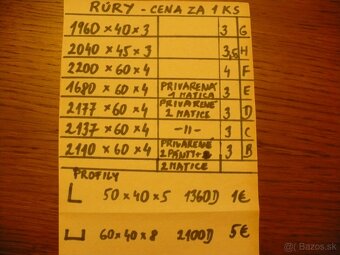 RÚRY - CENA ZA 1 KS
1960 × 40 × 3 3 G
2040 × 45 × 3 3,5 H
2200 × 60 × 4 4 F
1680 × 60 × 4 PRIVARENÁ 1 MATICA 3 E
2177 × 60 × 4 PRIVARENÉ 2 MATICE 3 D
2137 × 60 × 4 -II- 3 C
2110 × 60 × 4 PRIVARENÉ 2 PÁNTY+ 3 B
2 MATICE
PROFILY
50 × 40 × 5 1360D 1€
60 × 40 × 8 2100D 5€
Bazos.sk